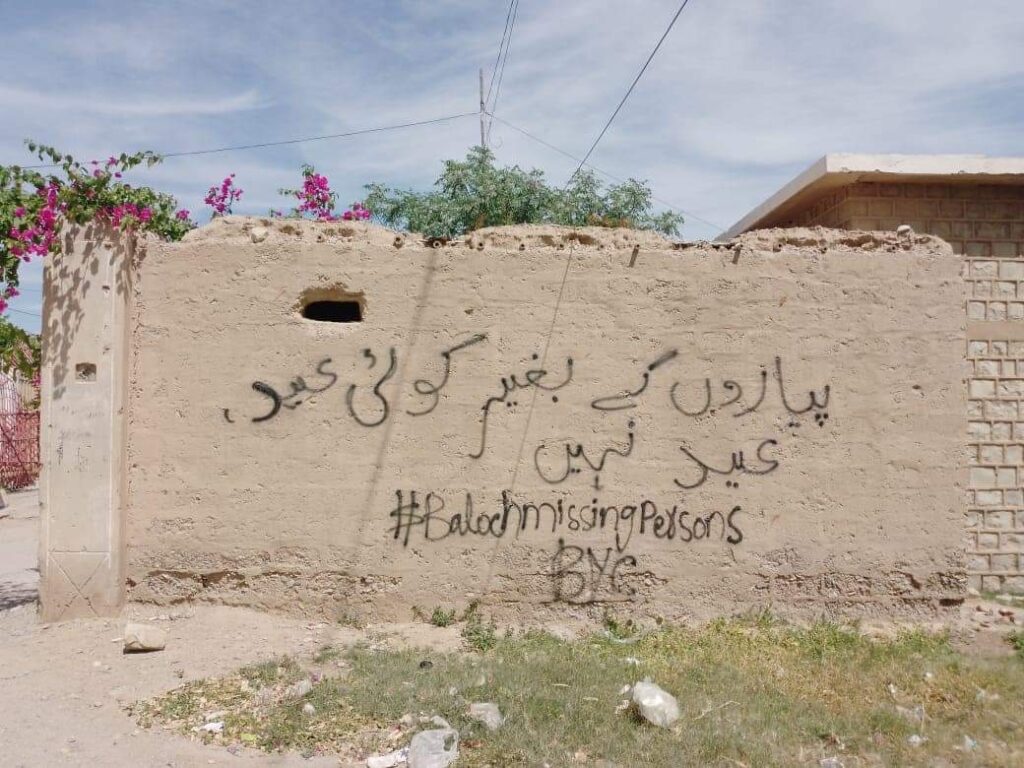 پیاروں کے بغیر کوئی عید،
عید نہیں
#BalochmissingPersons
BYC